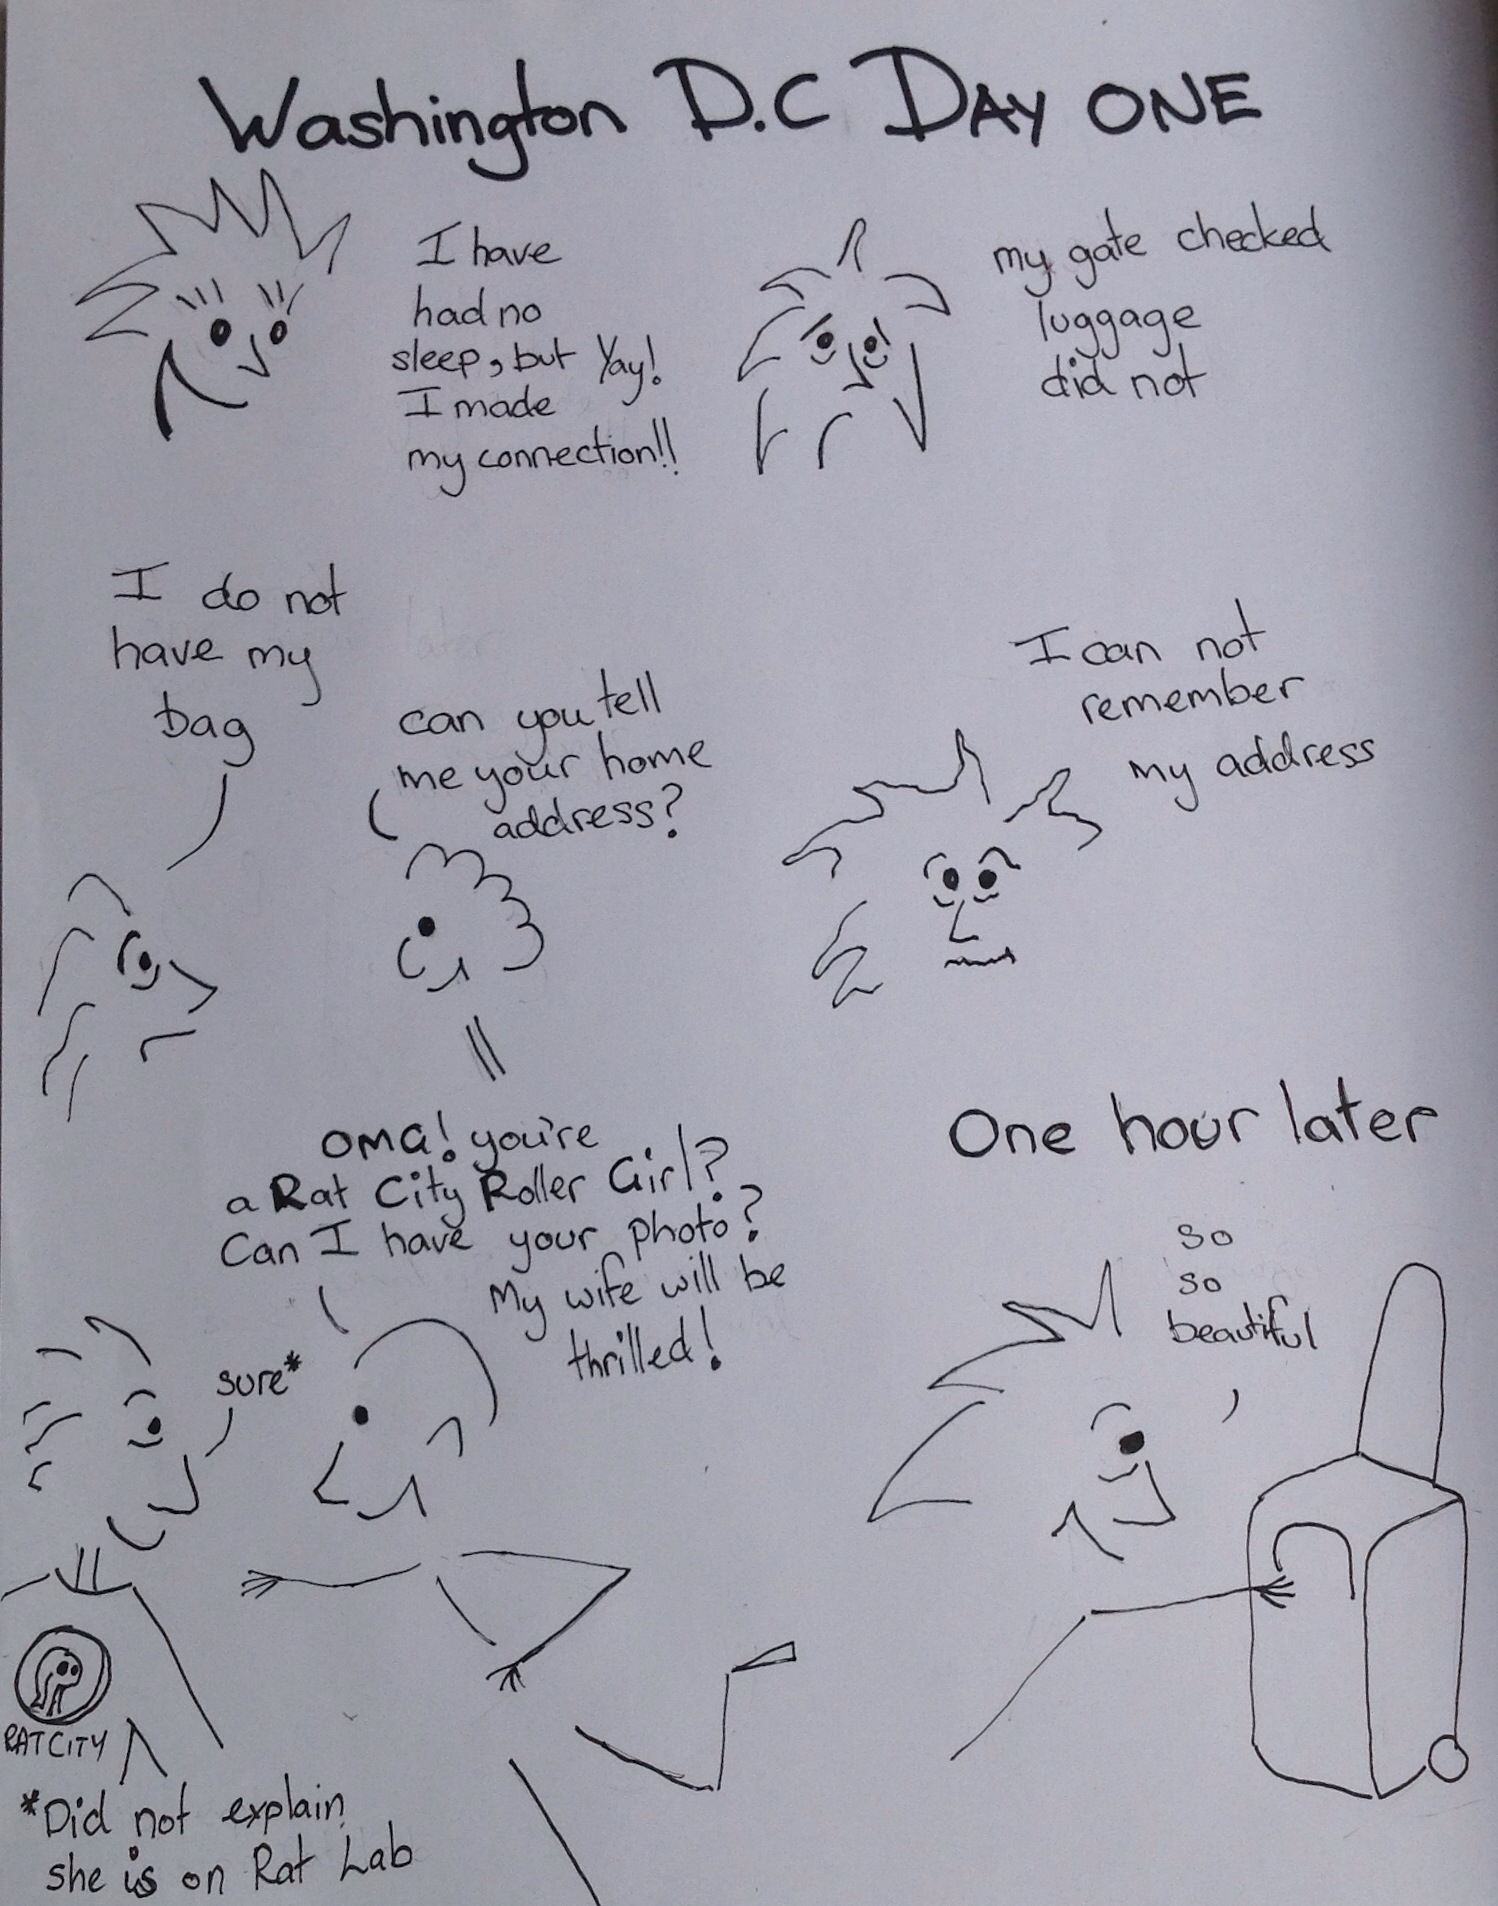 Washington D.C DAY ONE
I have
had no
sleep, but Yay!
I made
my connection!!
my gate checked
luggage
did not
I do not
have my
bag
can you tell
me your home
address?
I can not
remember
my address
OMG! you're
a Rat City Roller Girl?
Can I have your photo?
My wife will be
thrilled!
sure*
One hour later
so
so
beautiful
RAT CITY
*Did not explain
she is on Rat Lab